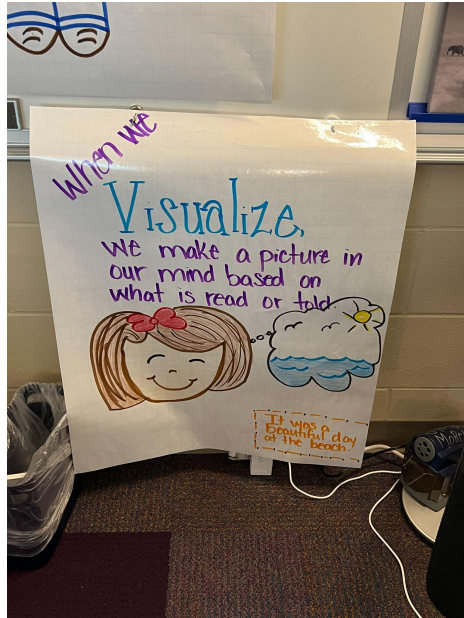 When we
Visualize,
we make a picture in
our mind based on
what is read or told.
It was a
Beautiful day
at the beach.